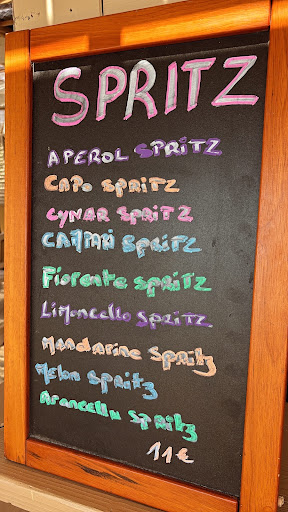 SPRITZ
APEROL SPRITZ
CAPO SPRITZ
CYNAR SPRITZ
SPRITZ
Fiorente SPRITZ
Limoncello SPRITZ
Mandarine Spritz
Melon Spritz
Arancello Spritz
11€